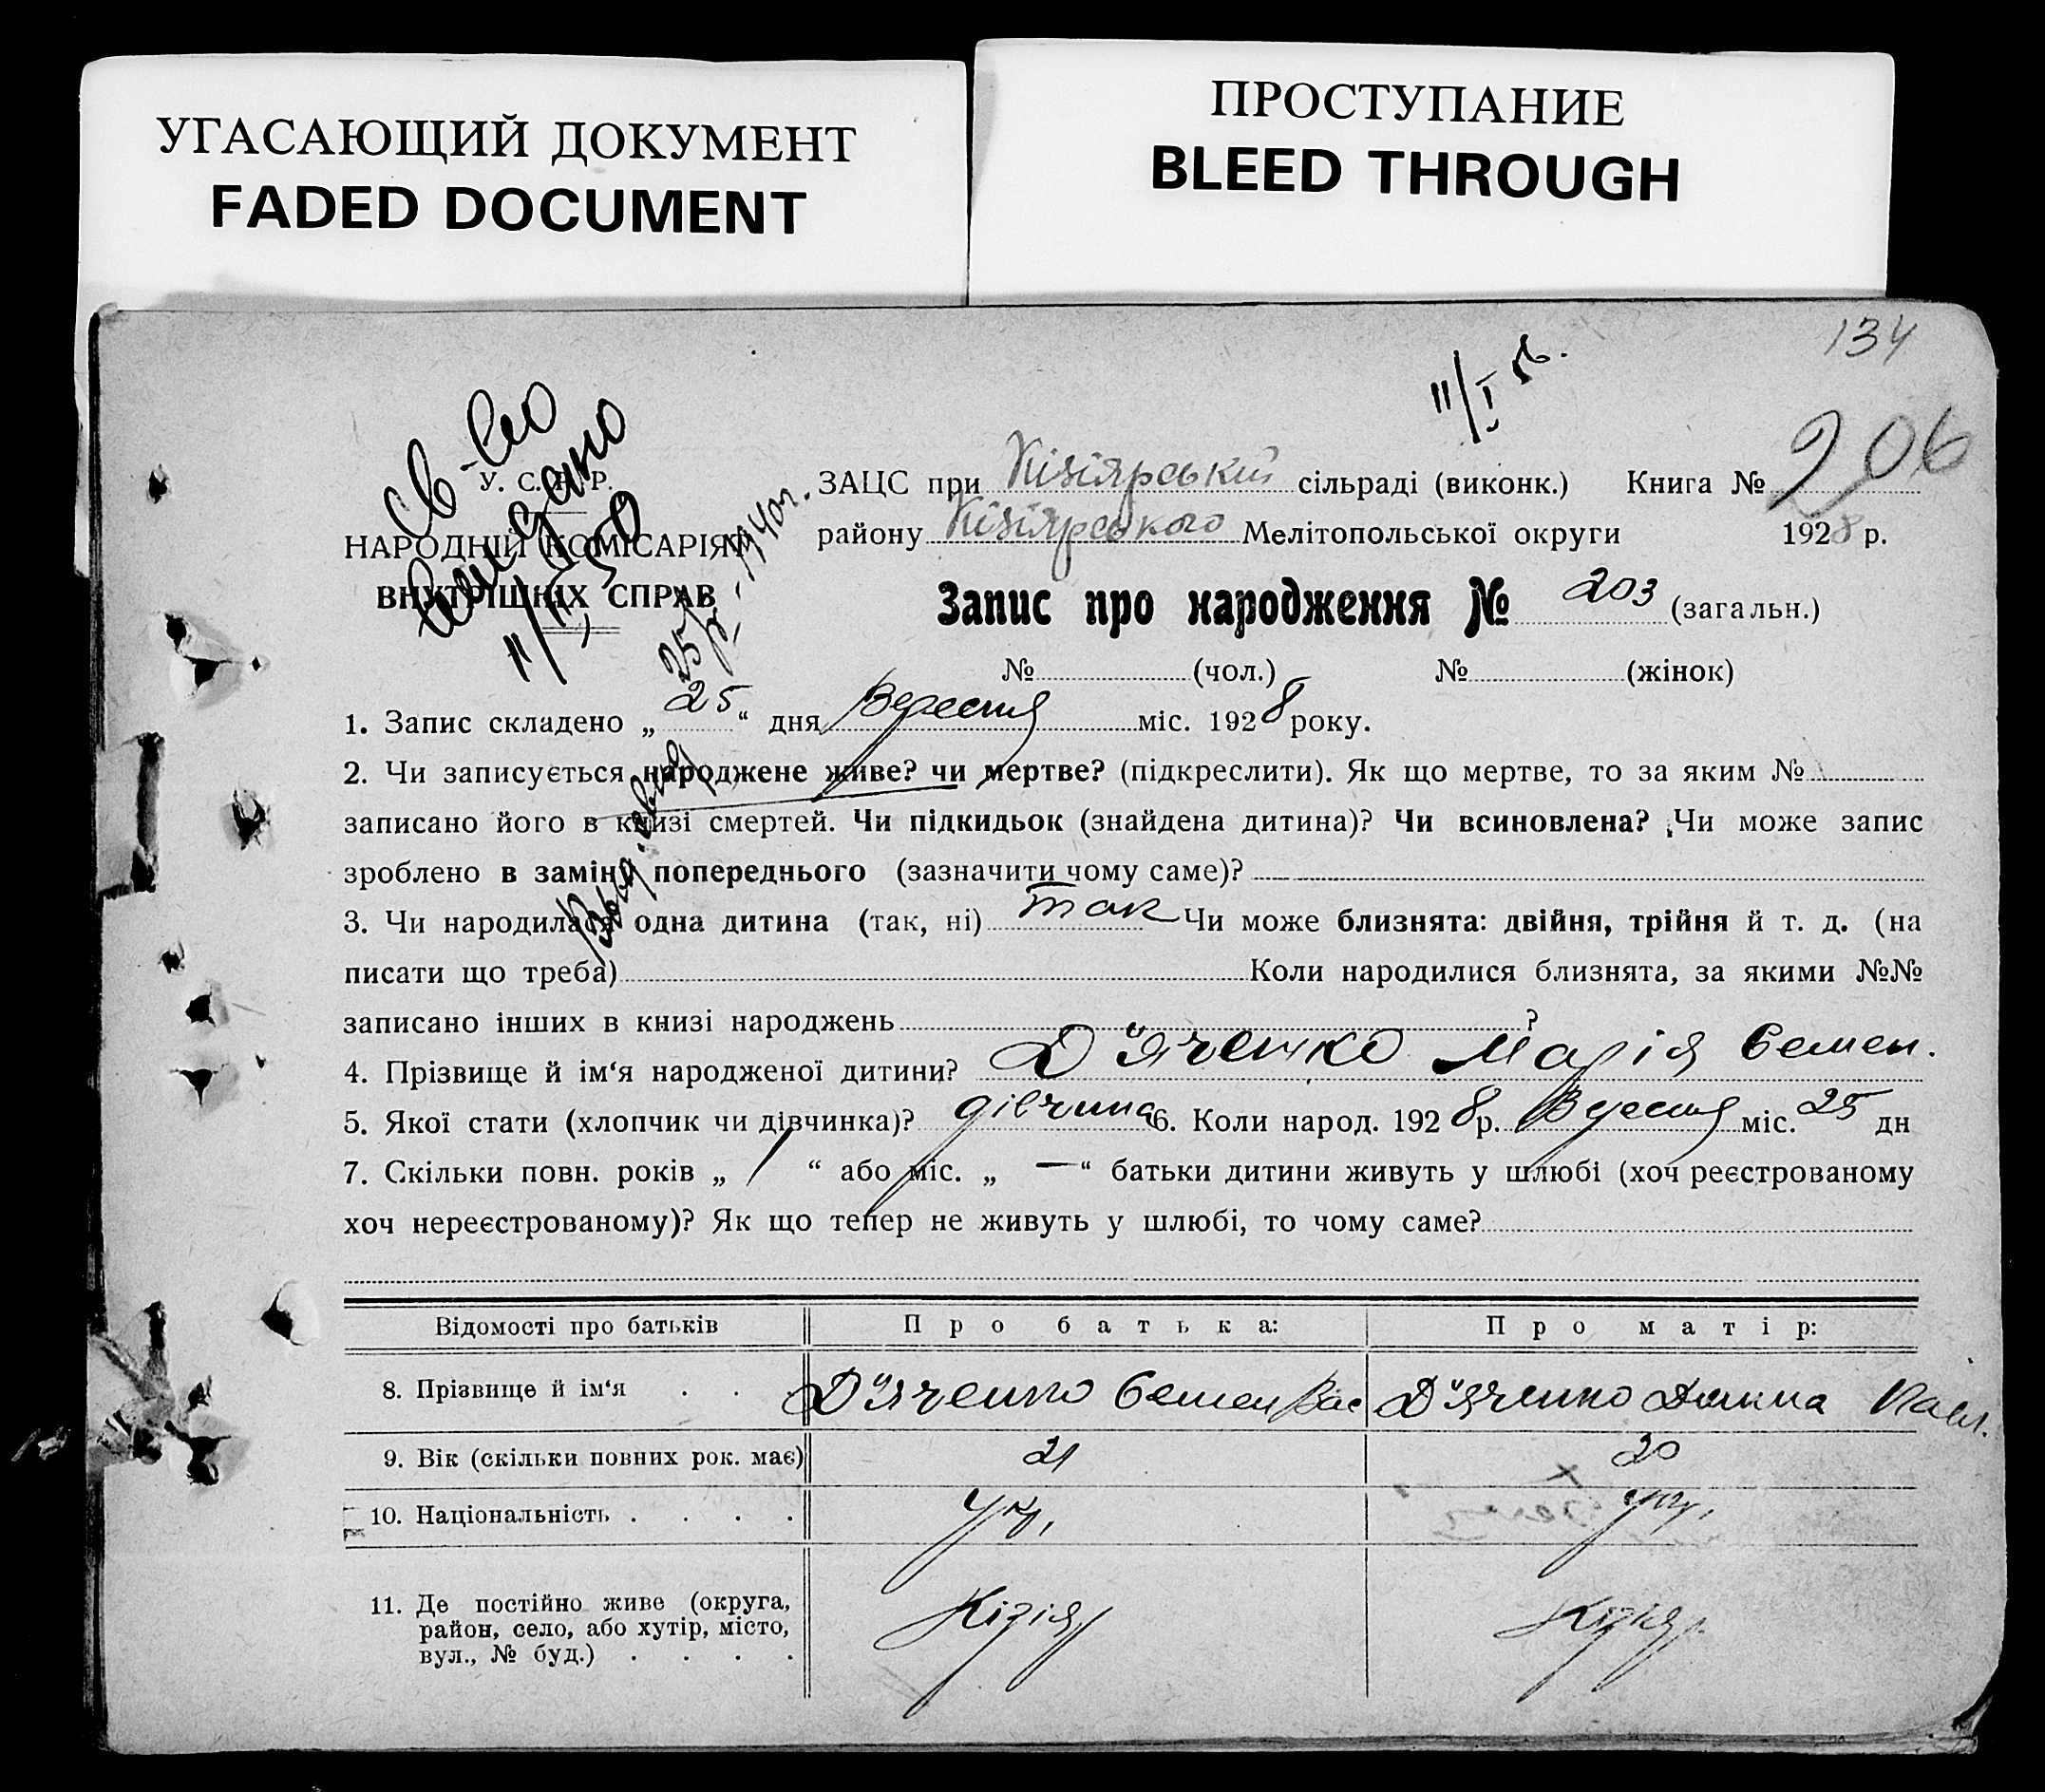 УГАСАЮЩИЙ ДОКУМЕНТ
FADED DOCUMENT
ПРОСТУПАНИЕ
BLEED THROUGH
134
11/I 56.
Св-во
выдано
У. С. Р. Р.
НАРОДНІЙ КОМІСАРІЯТ
ВНУТРІШНІХ СПРАВ
ЗАЦС при Кізіярській сільраді (виконк.) Книга № 206
району Кізіярського Мелітопольської округи 1928 р.
Запис про народження № 203 (загальн.)
№ (чол.) № (жінок)
1. Запис складено „ 25 “ дня Вересня міс. 1928 року.
2. Чи записується народжене живе? чи мертве? (підкреслити). Як що мертве, то за яким №
записано його в книзі смертей. Чи підкидьок (знайдена дитина)? Чи всиновлена? Чи може запис
зроблено в заміну попереднього (зазначити чому саме)?
3. Чи народилася одна дитина (так, ні) так Чи може близнята: двійня, трійня й т. д. (на
писати що треба) Коли народилися близнята, за якими №№
записано інших в книзі народжень ?
4. Прізвище й ім‘я народженої дитини? Д"яченко Марія Семен.
5. Якої стати (хлопчик чи дівчинка)? дівчина 6. Коли народ. 1928 р. Вересня міс. 25 дн
7. Скільки повн. років „ 1 “ або міс. „ — “ батьки дитини живуть у шлюбі (хоч реєстрованому
хоч нереєстрованому)? Як що тепер не живуть у шлюбі, то чому саме?
Відомості про батьків Про батька: Про матір:
8. Прізвище й ім‘я . . Д"яченко Семен Вас Д"яченко Домна Павл.
9. Вік (скільки повних рок. має) 21 20
10. Національність . . . . Укр. укр.
11. Де постійно живе (округа,
район, село, або хутір, місто,
вул., № буд.) . . . . Кізіяр Кізіяр